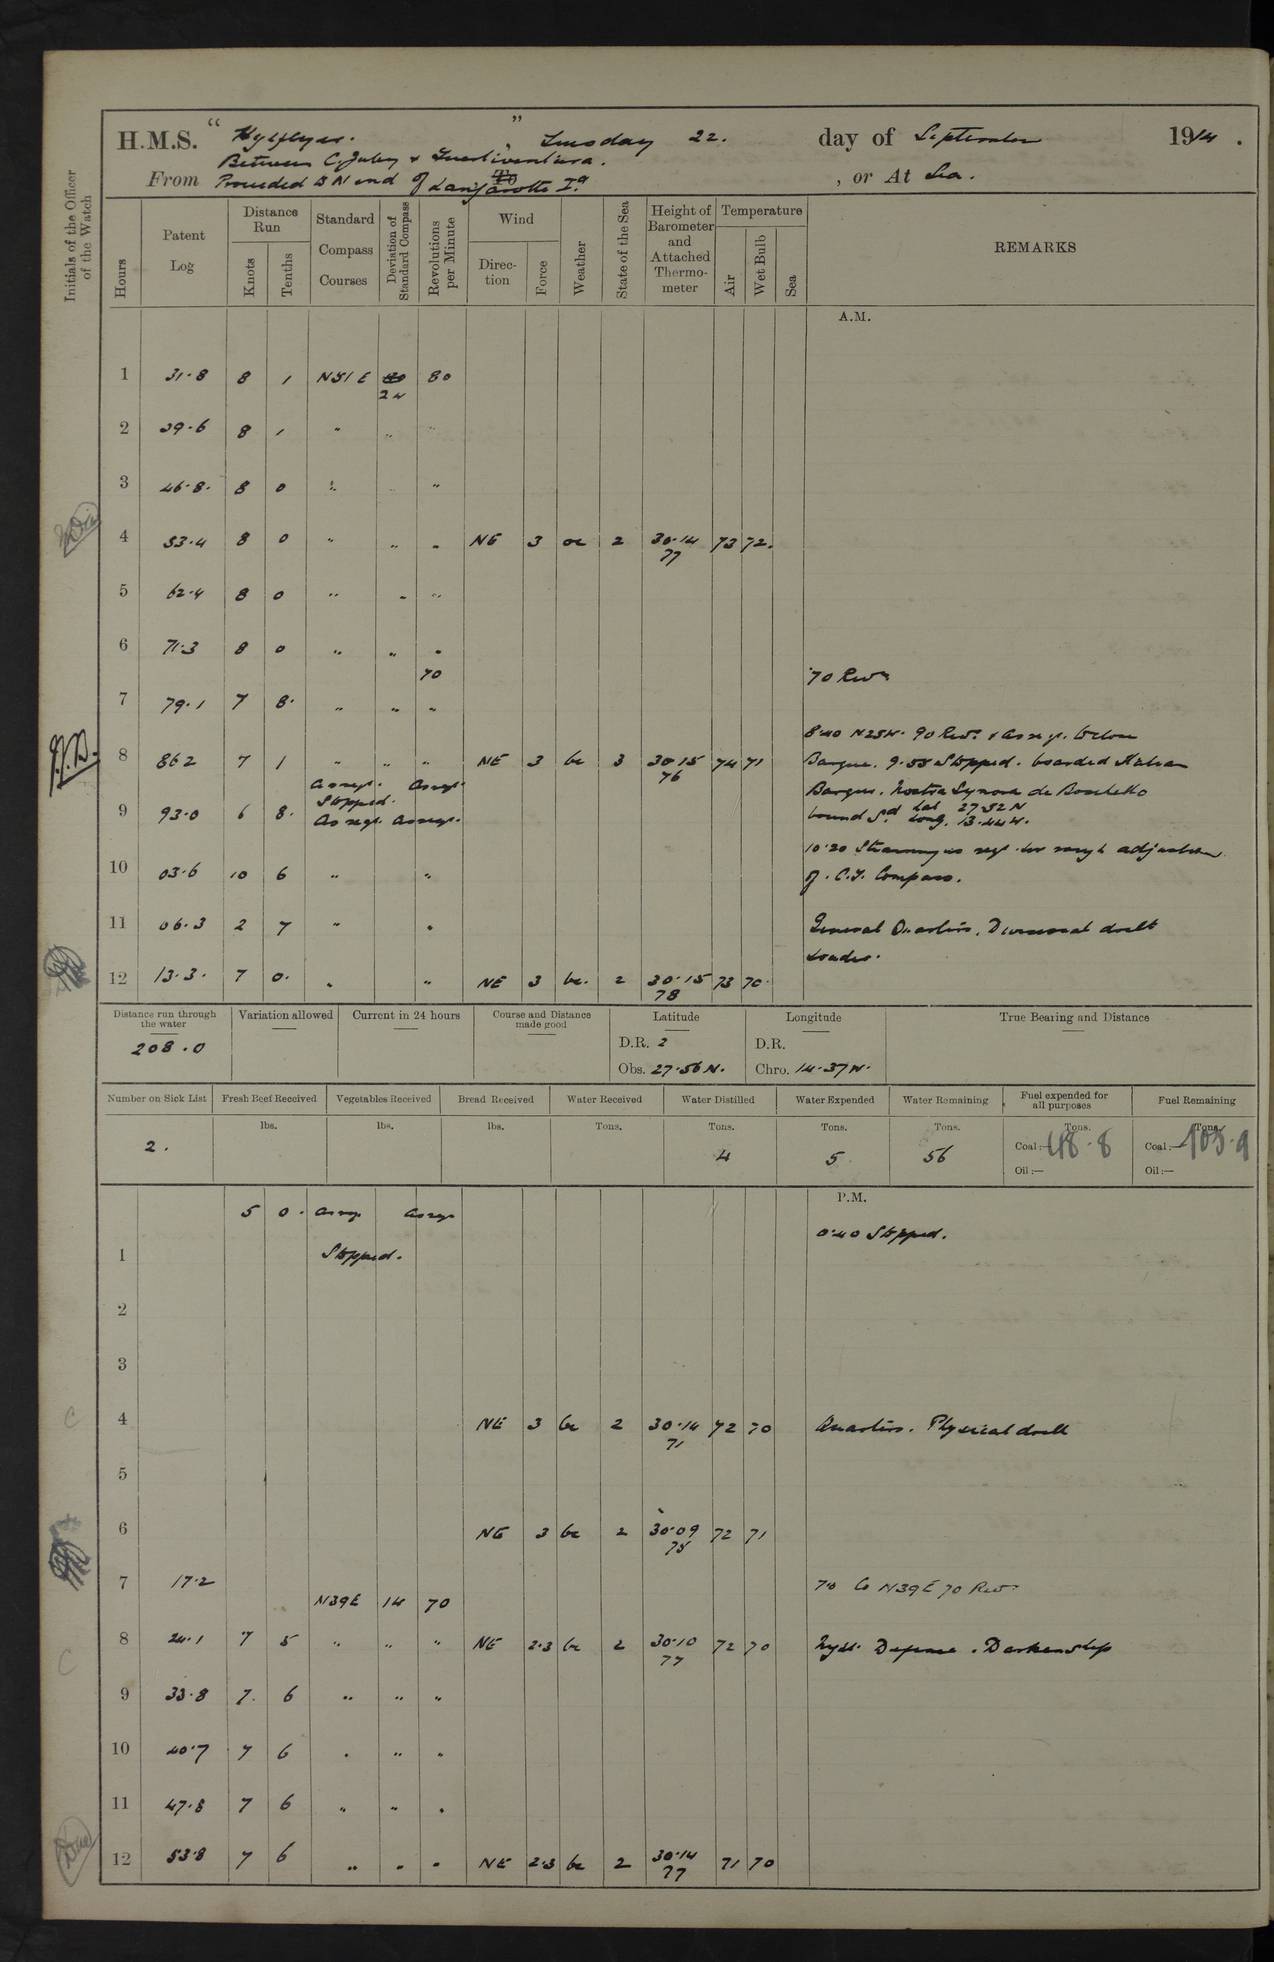 H.M.S. " Highflyer. " Tuesday 22. day of September 1914.
Between C. Juby & Fuertiventura.
From Proceeded to N end of Lanzarotte Id , or At Sea.
Initials of the Officer of the Watch
Hours
Patent Log
Distance Run
Knots
Tenths
Standard Compass Courses
Deviation of Standard Compass
Revolutions per Minute
Wind
Direction
Force
Weather
State of the Sea
Height of Barometer and Attached Thermometer
Temperature
Air
Wet Bulb
Sea
REMARKS
A.M.
1 31.8 8 1 N51E 80
24
2 39.6 8 1 " " "
3 46.8. 8 0 " " "
4 53.4 8 0 " " " NE 3 oc 2 30.14 73 72.
77
5 62.4 8 0 " " "
6 71.3 8 0 " " "
70
70 Revs
7 79.1 7 8. " " "
8.40 N23W. 90 Revs & as reqr. to close
8 86 2 7 1 " " " NE 3 bc 3 30.15 74 71 Barque. 9.55 Stopped. boarded Italian
76
As reqr. As reqr.
Stopped.
Barque. Nostra Synora de Boschetto
9 93.0 6 8. As reqr. As reqr. bound Sd Lat 27.52N
Long. 13.44W.
10.20 Steaming as reqr. for rough adjustment
10 03.6 10 6 " " of C.T. Compass.
11 06.3 2 7 " " General Quarters. Divisional drill
Loader.
12 13.3. 7 0. " " NE 3 bc. 2 30.15 73 70.
78
Distance run through the water
208.0
Variation allowed
Current in 24 hours
Course and Distance made good
Latitude
D.R. 2
Obs. 27.56 N.
Longitude
D.R.
Chro. 14.37 W.
True Bearing and Distance
Number on Sick List
2.
Fresh Beef Received
lbs.
Vegetables Received
lbs.
Bread Received
lbs.
Water Received
Tons.
Water Distilled
Tons.
4
Water Expended
Tons.
5
Water Remaining
Tons.
56
Fuel expended for all purposes
Tons.
Coal:— 48.8
Oil:—
Fuel Remaining
Tons.
Coal:— 905.9
Oil:—
P.M.
5 0. As reqr As reqr
0.40 Stopped.
1 Stopped.
2
3
4 NE 3 bc 2 30.14 72 70 Quarters. Physical drill
71
5
6 NE 3 bc 2 30.09 72 71
75
7 17.2 7.0 Co N39E 70 Revs
N39E 14 70
8 24.1 7 5 " " " NE 2.3 bc 2 30.10 72 70 Night Defence. Darken ship
77
9 33.8 7. 6 " " "
10 40.7 7 6 " " "
11 47.8 7 6 " " "
12 53.8 7 6 " " " NE 2.3 bc 2 30.14 71 70
77